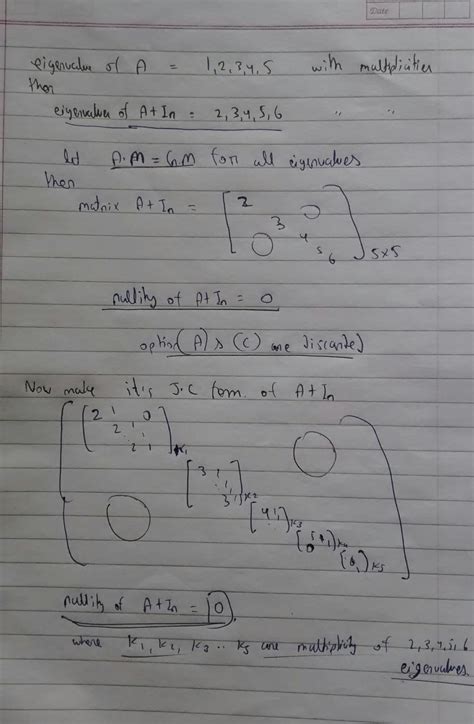 Date
eigenvalue of A = 1,2,3,4,5 with multiplicities
then
eigenvalues of A+In = 2,3,4,5,6 " "
let A.M = G.M for all eigenvalues
then
matrix A+In = [2 3 4 5 6 0 0] 5x5
nullity of A+In = 0
option (A) & (C) are discarded
Now make it's J.C form of A+In
[2 1 0
2 1
2 1] K1
[3 1
1
3 1] K2
[4 1] K3
[5 1] K4
[6 1] K5
nullity of A+In = 0
where K1, K2, K3 .. K5 are multiplicity of 2,3,4,5,6
eigenvalues.